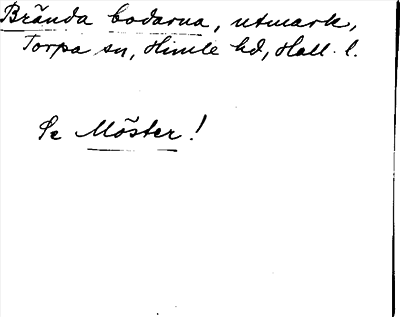 Brända bodarna, utmark,
Torpa sn, Himle hd, Hall. l.
Se Möster!